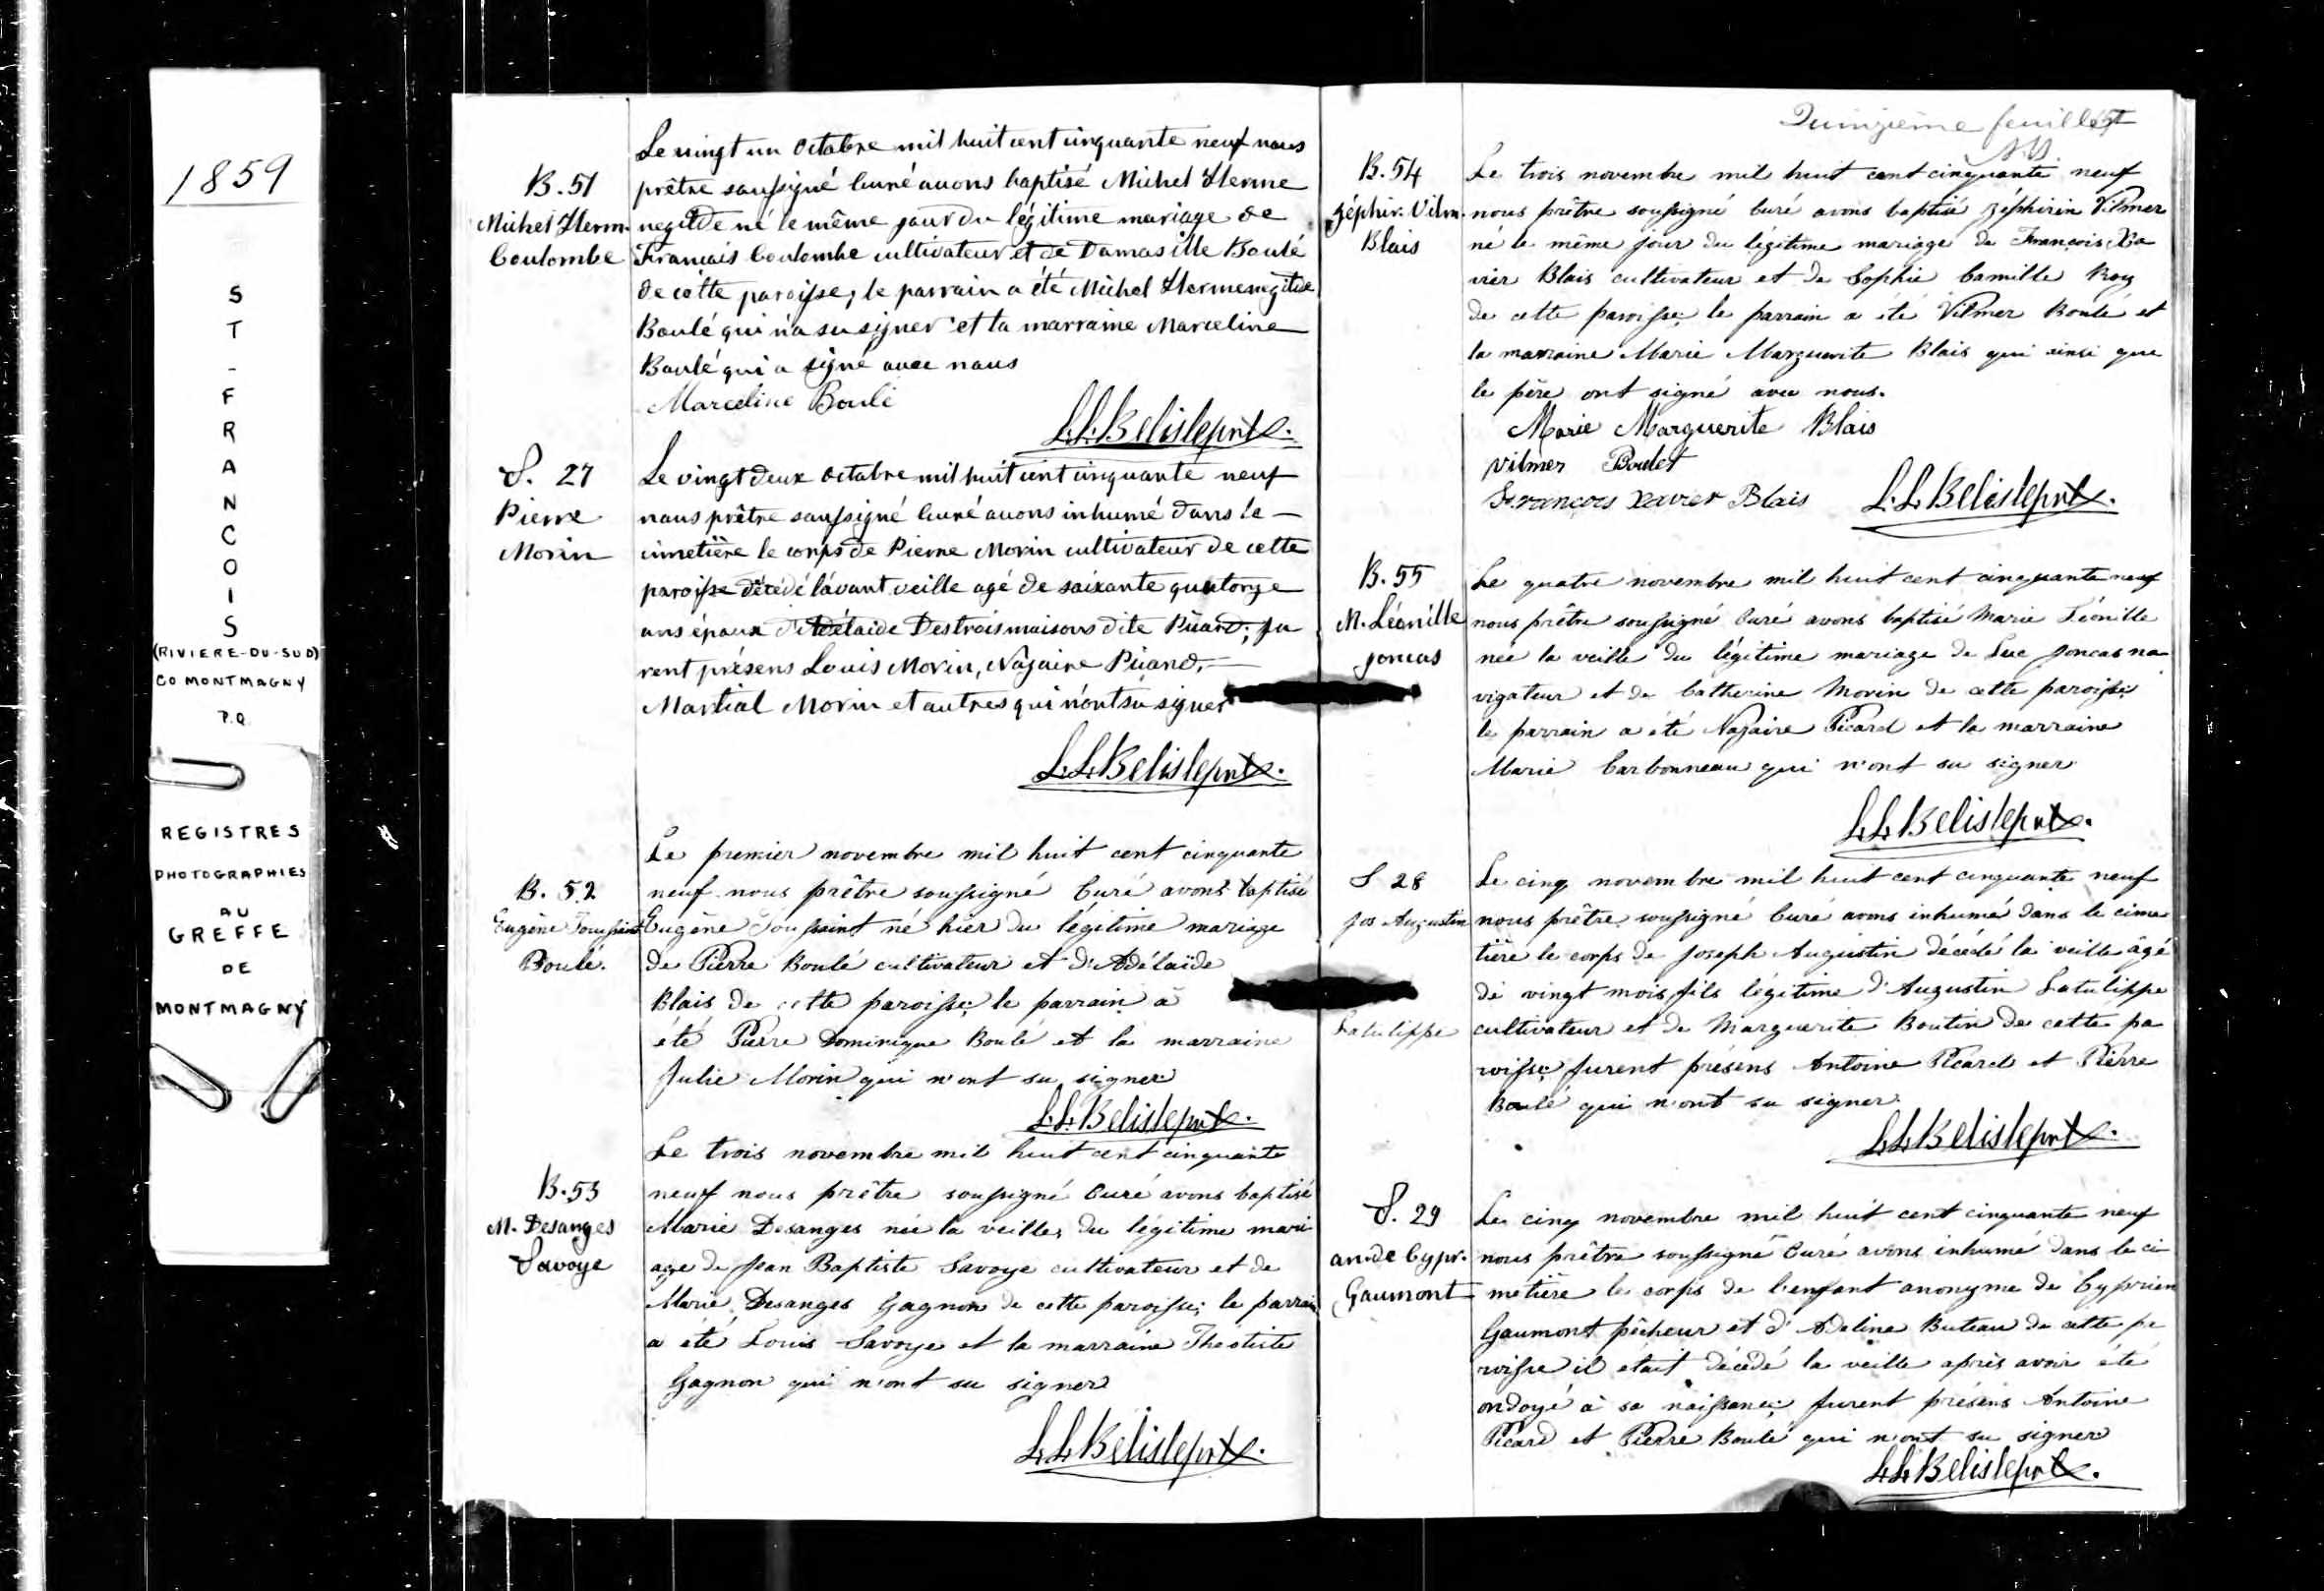 1859
ST-FRANCOIS
(RIVIERE-DU-SUD)
CO MONTMAGNY
P.Q.
REGISTRES
PHOTOGRAPHIES
AU
GREFFE
DE
MONTMAGNY
Le vingt un octobre mil huit cent cinquante neuf nous
B. 51
prêtre soussigné Curé avons baptisé Michel Herme
Michel Herm.
negilde né le même jour du légitime mariage de
Coulombe
François Coulombe cultivateur et de Damasille Boulé
de cette paroisse, le parrain a été Michel Hermenegilde
Boulé qui n'a su signer et la marraine Marceline
Boulé qui a signé avec nous
Marceline Boulé
L.L. Belisle ptre.
S. 27
Le vingt deux octobre mil huit cent cinquante neuf
Pierre
nous prêtre soussigné Curé avons inhumé dans le
Morin
cimetière le corps de Pierre Morin cultivateur de cette
paroisse décédé l'avant veille agé de soixante quatorze
ans époux d'Adélaide Destroismaisons dite Picard; fu
rent présens Louis Morin, Nazaire Picard,
Martial Morin et autres qui n'ont su signer
L.L. Belisle ptre.
Le premier novembre mil huit cent cinquante
B. 52
neuf nous prêtre soussigné Curé avons baptisé
Eugène Toussaint
Eugène Toussaint né hier du légitime mariage
Boulé.
de Pierre Boulé cultivateur et d'Adélaïde
Blais de cette paroisse; le parrain a
été Pierre Dominique Boulé et la marraine
Julie Morin qui n'ont su signer
L.L. Belisle ptre.
Le trois novembre mil huit cent cinquante
B. 53
neuf nous prêtre soussigné Curé avons baptisé
M. Desanges
Marie Desanges née la veille, du légitime mari
Savoye
age de Jean Baptiste Savoye cultivateur et de
Marie Desanges Gagnon de cette paroisse; le parrain
a été Louis Savoye et la marraine Théotiste
Gagnon qui n'ont su signer
L.L. Belisle ptre.
Quinzième feuillet
B. 54
Le trois novembre mil huit cent cinquante neuf
Zéphir. Vilm.
nous prêtre soussigné Curé avons baptisé Zéphirin Vilmer
Blais
né le même jour du légitime mariage de François Xa
vier Blais cultivateur et de Sophie Camille Roy
de cette paroisse; le parrain a été Vilmer Boulé et
la marraine Marie Marguerite Blais qui ainsi que
le père ont signé avec nous.
Marie Marguerite Blais
Vilmer Boulet
François Xavier Blais
L.L. Belisle ptre.
B. 55
Le quatre novembre mil huit cent cinquante neuf
M. Léonille
nous prêtre soussigné Curé avons baptisé Marie Léonille
Joncas
née la veille du légitime mariage de Luc Joncas na
vigateur et de Catherine Morin de cette paroisse;
le parrain a été Nazaire Picard et la marraine
Marie Carbonneau qui n'ont su signer
L.L. Belisle ptre.
S 28
Le cinq novembre mil huit cent cinquante neuf
Jos Augustin
nous prêtre soussigné Curé avons inhumé dans le cime
tière le corps de Joseph Augustin décédé la veille âgé
de vingt mois fils légitime d'Augustin Latulippe
Latulippe
cultivateur et de Marguerite Boutin de cette pa
roisse; furent présens Antoine Picard et Pierre
Boulé qui n'ont su signer.
L.L. Belisle ptre.
S. 29
Le cinq novembre mil huit cent cinquante neuf
an. de Cypr.
nous prêtre soussigné Curé avons inhumé dans le ci
Gaumont
metière le corps de l'enfant anonyme de Cyprien
Gaumont pêcheur et d'Adeline Buteau de cette pa
roisse il était décédé la veille après avoir été
ondoyé à sa naissance; furent présens Antoine
Picard et Pierre Boulé qui n'ont su signer
L.L. Belisle ptre.